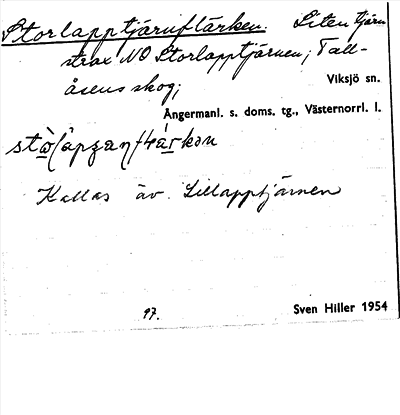 Storlapptjärnflärken. Liten tjärn
strax NO Storlapptjärnen; Tall-
åsens skog;
Viksjö sn.
Ångermanl. s. doms. tg., Västernorrl. l.
Kallas äv. Lillapptjärnen
97.
Sven Hiller 1954